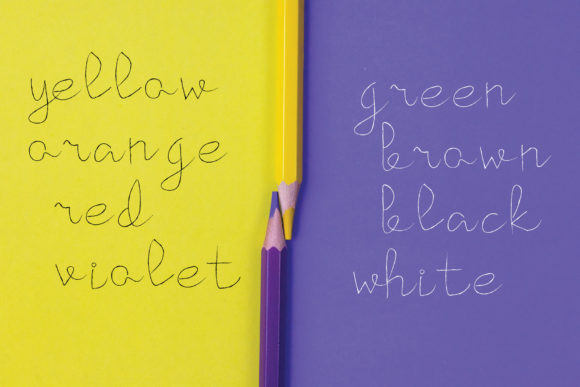 yellow
orange
red
violet
green
brown
black
white